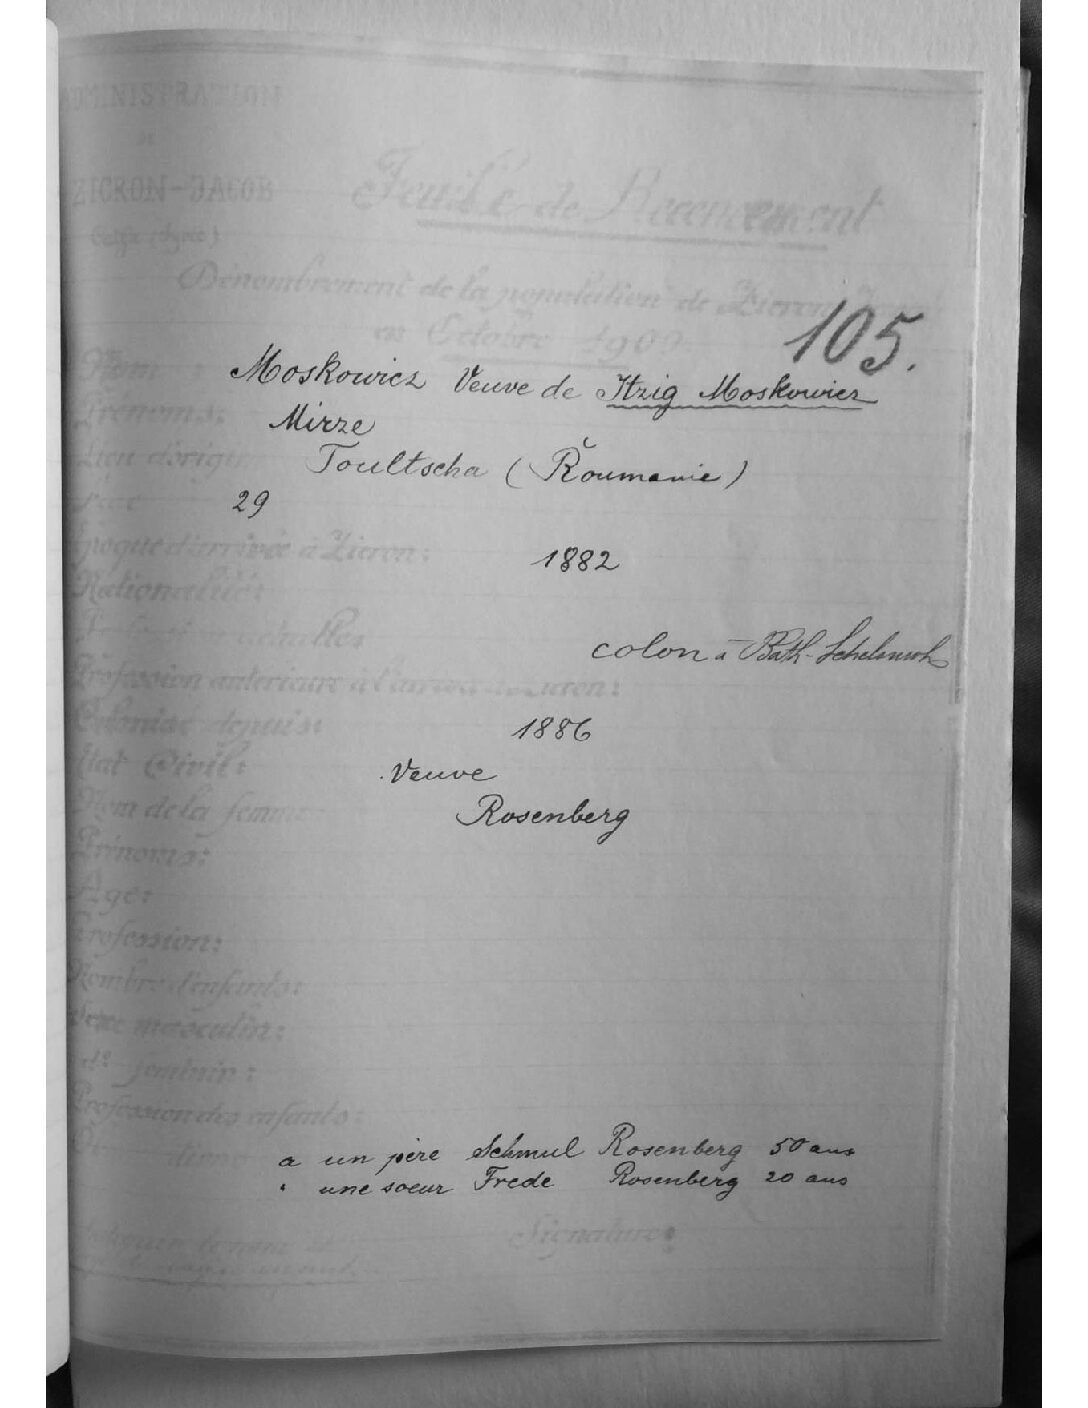 ADMINISTRATION
DE
ZICRON-JACOB
Feuille de Recencement
Dénombrement de la population de Zicron
en Octobre
105.
Nom:
Moskowicz Veuve de Itzig Moskowicz
Prénoms:
Mirze
Lieu d'origine
Toultscha (Roumanie)
Age
29
Epoque d'arrivée à Zicron:
1882
Nationalité:
colon à Bath-Schelomoh
Profession antérieure à l'arrivée à Zicron:
Colonisé depuis:
1886
Etat Civil:
Veuve
Nom de la femme
Rosenberg
Prénoms:
Age:
Profession:
Nombre d'enfants:
Sexe masculin:
do féminin:
Profession des enfants:
a un père Schmul Rosenberg 50 ans
" une soeur Frede Rosenberg 20 ans
Signature: